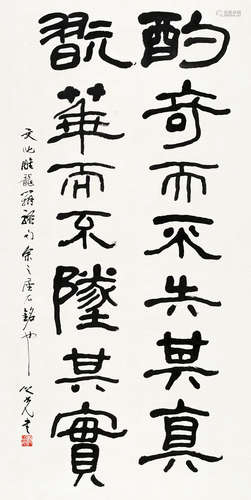 酌奇而不失其真
翫華而不墜其實
文心雕龍辨騷句余之座右銘也